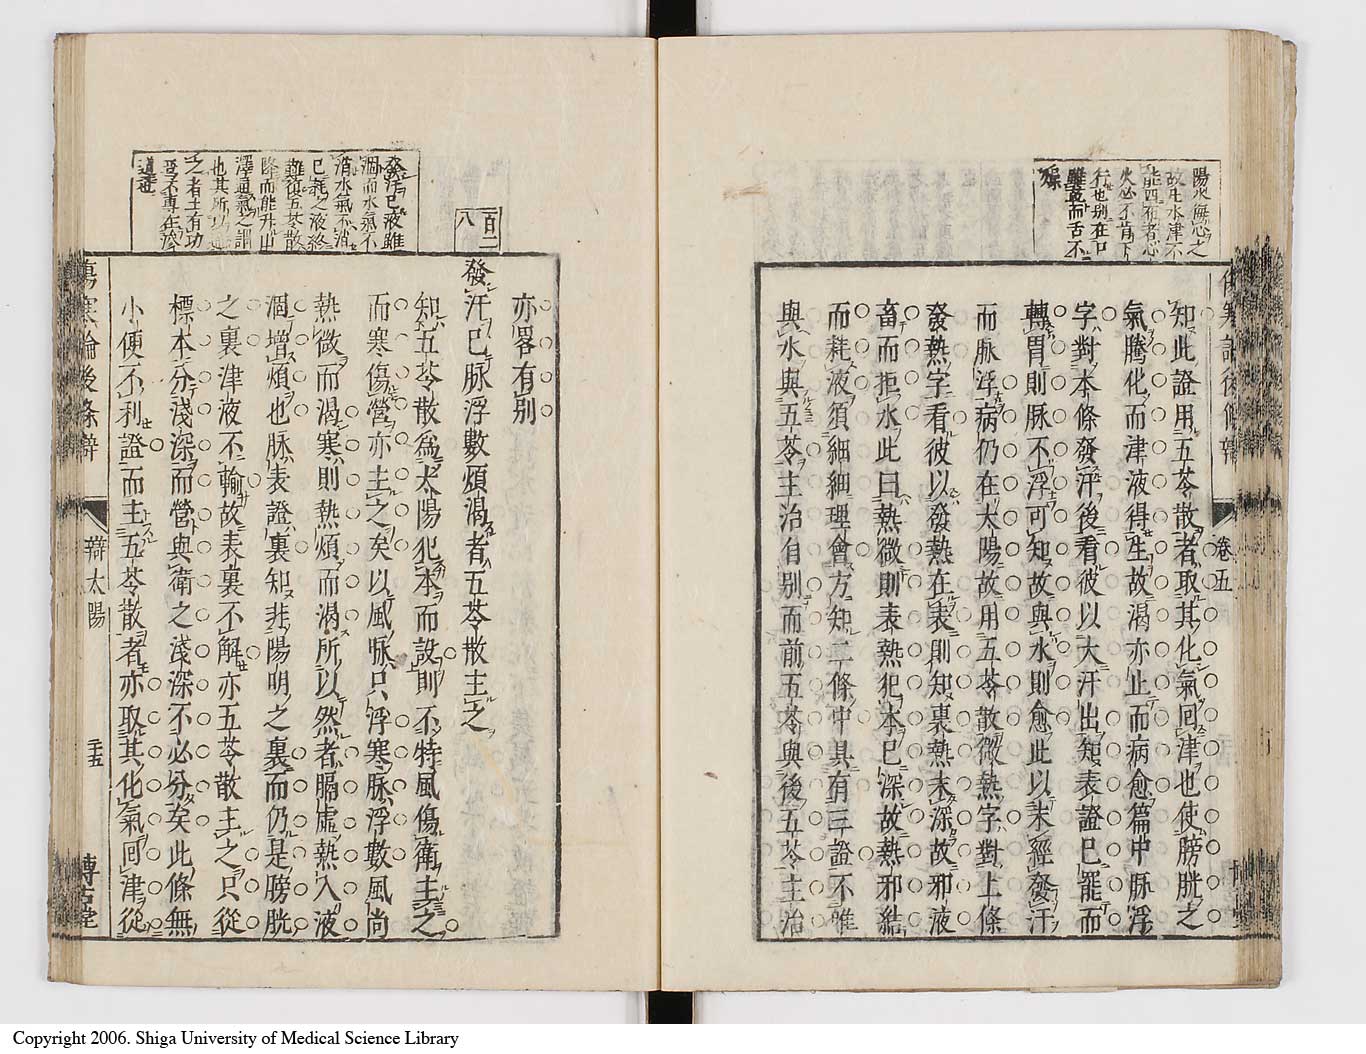 陽火無心之
故凡水津不
能四布者心
火必不肯下
行也別在口
雖乾而舌不
燥
傷寒論後條辯
卷五
知此證用五苓散者取其化氣回津也使膀胱之
氣騰化而津液得生故渴亦止而病愈篇中脉浮
字對本條發汗後看彼以大汗出知表證已罷而
轉胃則脉不浮可知故與水則愈此以未經發汗
而脉浮病仍在太陽故用五苓散微熱字對上條
發熱字看彼以發熱在表則知裏熱未深故邪液
畜而拒水此曰熱微則表熱犯本已深故熱邪結
而耗液須細細理會方知二條中具有三證不惟
與水與五苓主治自別而前五苓與後五苓主治
發汗已液雖
涸而水氣不
消水氣不消
已耗之液終
難復五苓散
降而能升出
澤通氣之謂
也其所以
之者土有功
百二八
亦畧有別
發汗已脉浮數煩渴者五苓散主之
知五苓散為太陽犯本而設則不特風傷衛主之
而寒傷營亦主之矣以風脉只浮寒脉浮數風尚
熱微而渴寒則熱煩而渴所以然者膈虛熱入液
涸增煩也脉表證裏知非陽明之裏而仍是膀胱
之裏津液不輸故表裏不解亦五苓散主之只從
標本分淺深而營與衛之淺深不必分矣此條無
小便不利證而主五苓散者亦取其化氣回津從
傷寒論後條辯
辯太陽
三十五
博古堂
Copyright 2006. Shiga University of Medical Science Library